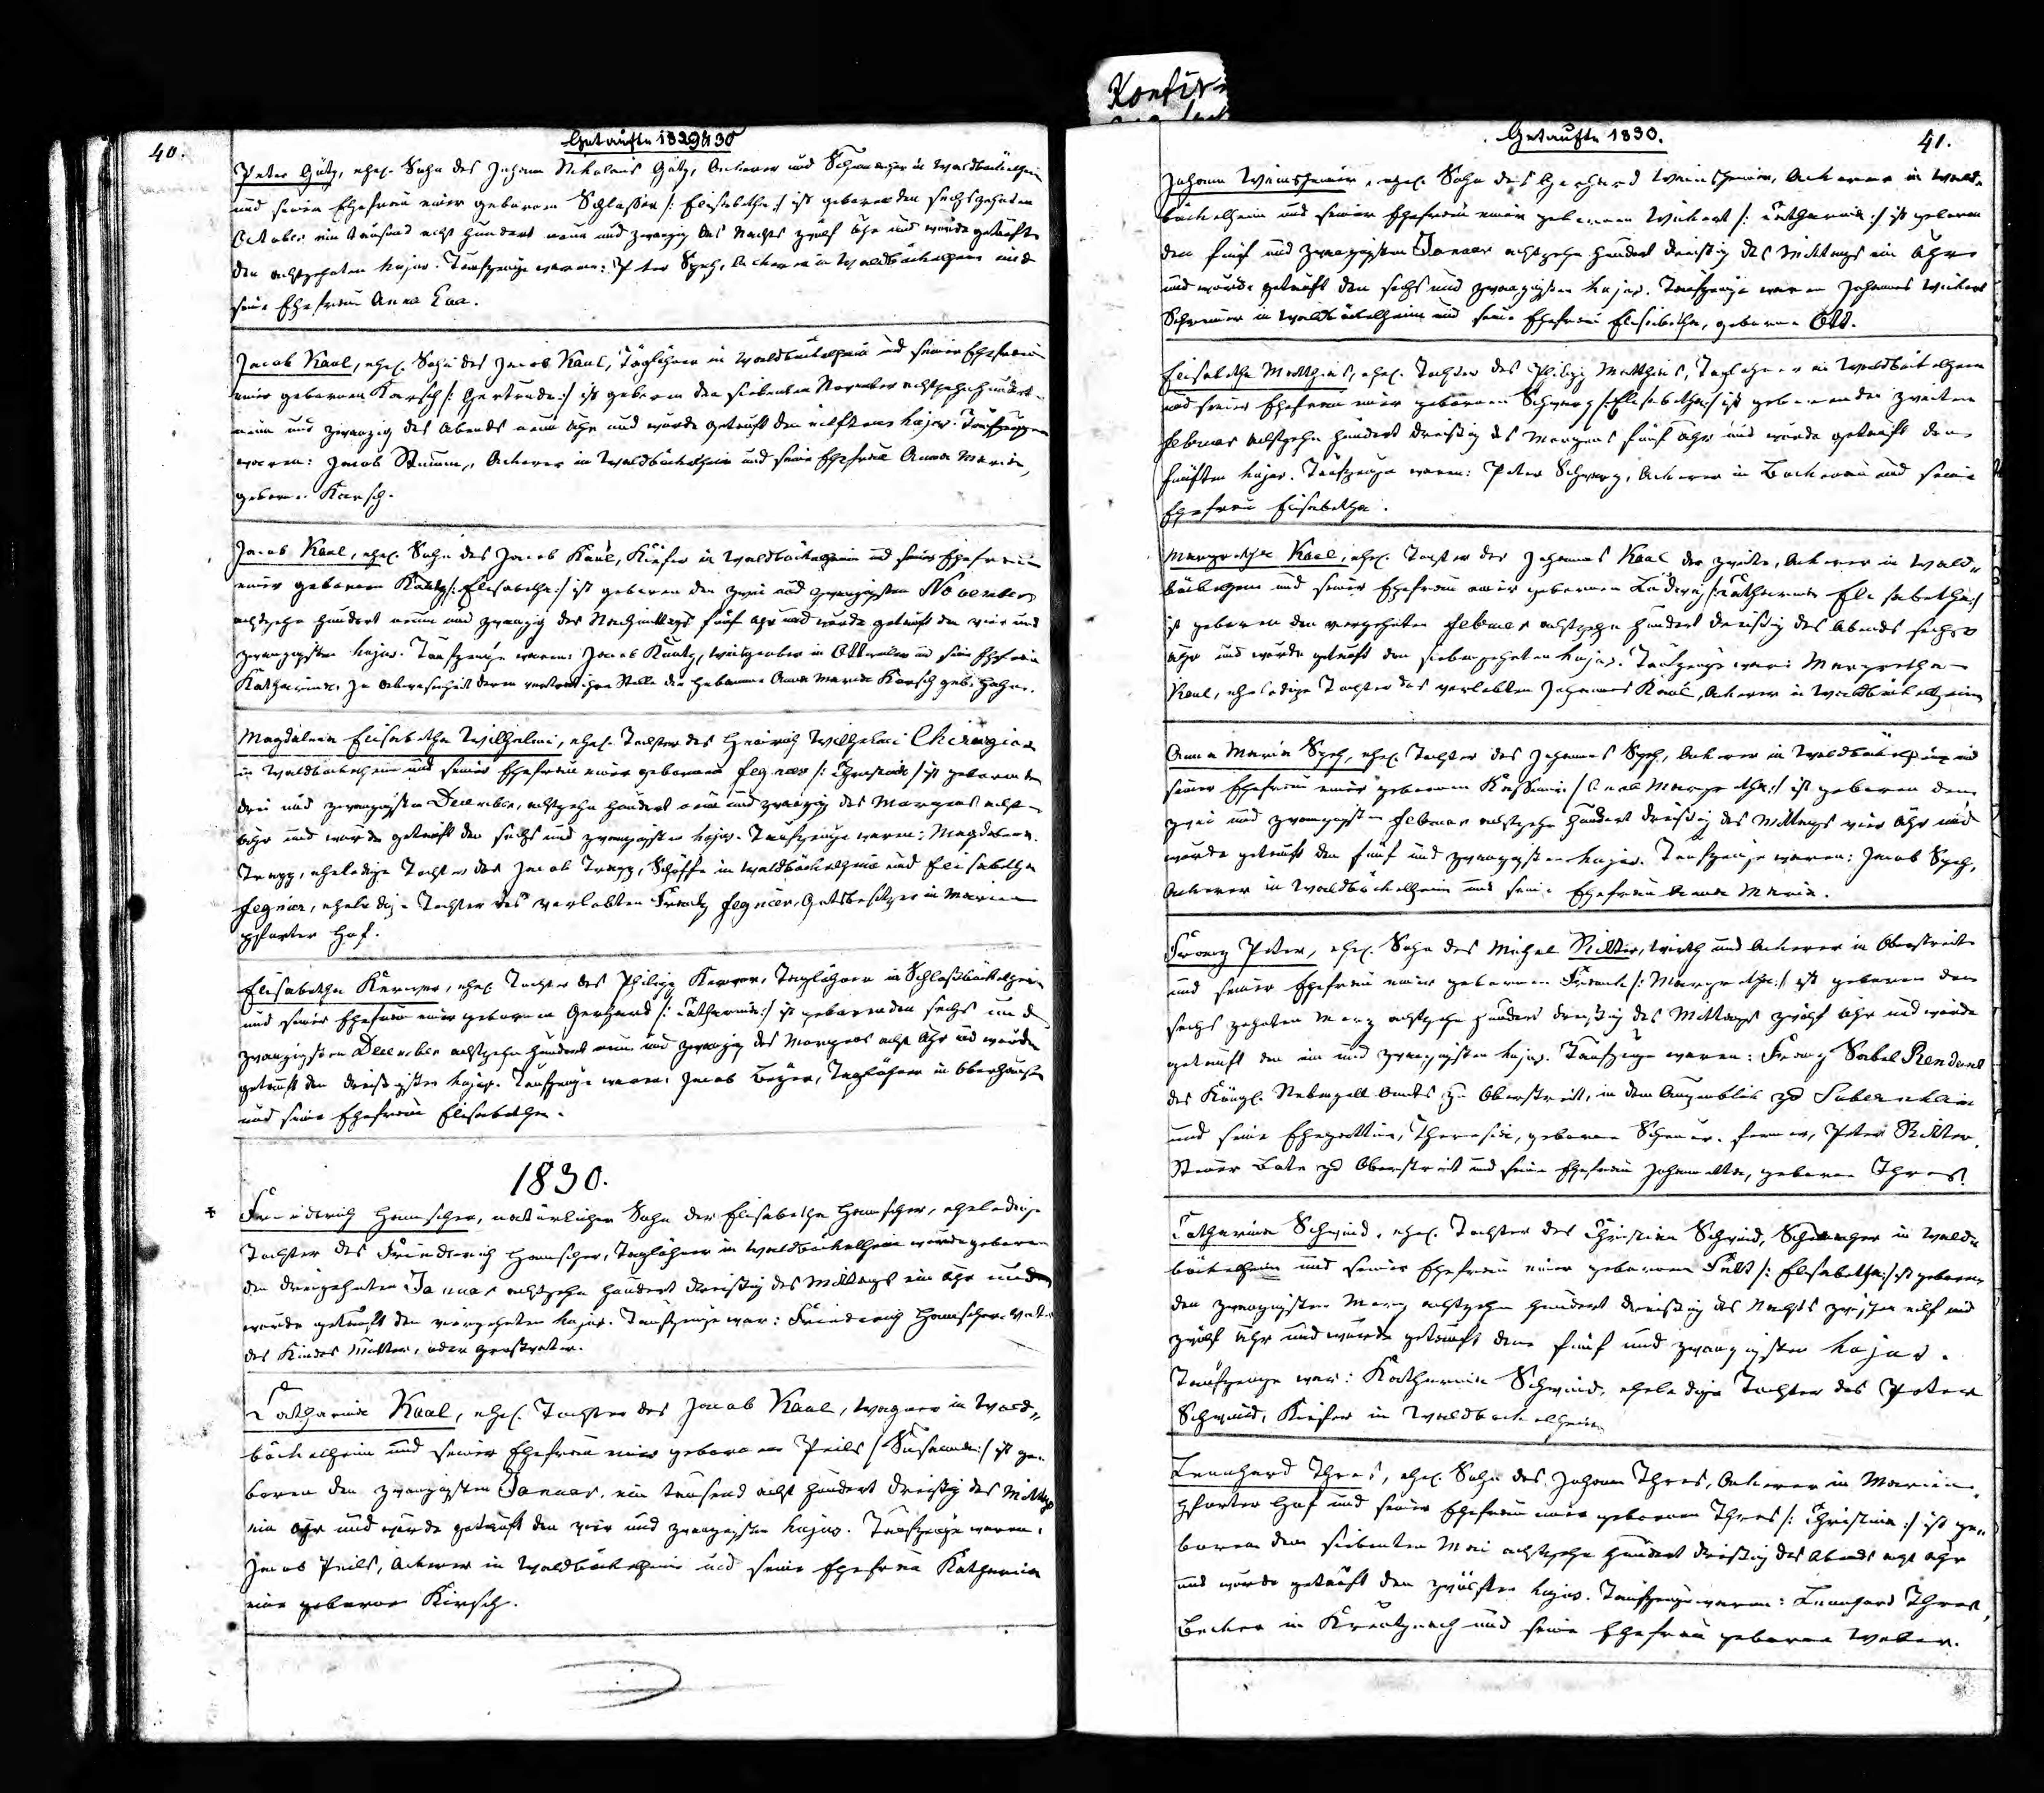 Konfir-
40.
Getaufte 1829 & 30
Peter Götz, ehel. Sohn des Johann Nikolaus Götz, Ackerer und Schumacher in Waldböckelheim
und seiner Ehefrau einer geborenen Schlosser /: Elisabetha :/ ist geboren den sechszehnten
October ein tausend acht hundert neun und zwanzig des Nachts zwölf Uhr und wurde getauft
den achtzehnten hujus. Taufzeugen waren: Peter Speh, Ackerer in Waldböckelheim und
seine Ehefrau Anna Eva.
Jacob Kaul, ehel. Sohn des Jacob Kaul, Taglöhner in Waldböckelheim und seiner Ehefrau
einer geborenen Karsch /: Gertruda :/ ist geboren den siebenten November achtzehn hundert
neun und zwanzig des Abends neun Uhr und wurde getauft den eilften hujus. Taufzeugen
waren: Jacob Stumm, Ackerer in Waldböckelheim und seine Ehefrau Anna Maria,
geborne Karsch.
Jacob Kaul, ehel. Sohn des Jacob Kaul, Kiefer in Waldböckelheim und seiner Ehefrau
einer geborenen Kautz /: Elisabetha :/ ist geboren den zwei und zwanzigsten November
achtzehn hundert neun und zwanzig des Nachmittags fünf Uhr und wurde getauft den vier und
zwanzigsten hujus. Taufzeuge waren: Jacob Kautz, in und seine Ehefrau
Katharina. In Abwesenheit deren vertrat ihre Stelle die Hebamme Anna Maria Karsch geb. Hahn.
Magdalena Elisabetha Wilhelmi, ehel. Tochter des Heinrich Wilhelmi Chirurgien
in Waldböckelheim und seiner Ehefrau einer geborenen Fegnier /: Christina :/ ist geboren den
drei und zwanzigsten December, achtzehn hundert neun und zwanzig des Morgens acht
Uhr und wurde getauft den sechs und zwanzigsten hujus. Taufzeuge waren: Magdalena
Trapp, eheledige Tochter des Jacob Trapp, Schöffe in Waldböckelheim und Elisabetha
Fegnier, eheledige Tochter des verlebten Frantz Fegnier, Gutsbesitzer in Marien
pforter Hof.
Elisabetha Kerner, ehel. Tochter des Philipp Kerner, Taglöhner in Schloßböckelheim
und seiner Ehefrau einer geborenen Gerhard /: Catharina :/ ist geboren den sechs und
zwanzigsten December achtzehn hundert neun und zwanzig des Morgens acht Uhr und wurde
getauft den dreißigsten hujus. Taufzeuge waren: Jacob Beyer, Taglöhner in Oberhausen
und seine Ehefrau Elisabetha.
1830.
+ Friederich Hamscher, natürlicher Sohn der Elisabetha Hamscher, eheledige
Tochter des Friederich Hamscher, Taglöhner in Waldböckelheim wurde geboren
den dreizehnten Januar achtzehn hundert dreißig des Mittags ein Uhr und
wurde getauft den vierzehnten hujus. Taufzeuge war: Friederich Hamscher Vater
des Kindes Mutter, oder Großvater.
Catharina Kaul, ehel. Tochter des Jacob Kaul, Wagner in Wald„
böckelheim und seiner Ehefrau einer geborenen Peils /: Susanna :/ ist ge„
boren den zwanzigsten Januar, ein tausend acht hundert dreißig des Mittags
ein Uhr und wurde getauft den vier und zwanzigsten hujus. Taufzeuge waren:
Jacob Peils, Ackerer in Waldböckelheim und seine Ehefrau Katharina
eine geborne Kirsch.
Getaufte 1830.
41.
Johann Weinsheimer, ehel. Sohn des Gerhard Weinsheimer, Ackerer in Wald„
böckelheim und seiner Ehefrau einer geborenen Wickert /: Catharina :/ ist geboren
den fünf und zwanzigsten Januar achtzehn hundert dreißig des Mittags ein Uhr
und wurde getauft den sechs und zwanzigsten hujus. Taufzeuge waren Johannes Wickert
Schreiner in Waldböckelheim und seine Ehefrau Elisabetha, geborne Ott.
Elisabetha Matthias, ehel. Tochter des Philipp Matthias, Taglöhner in Waldböckelheim
und seiner Ehefrau einer geborenen Schwarz /: Elisabetha :/ ist geboren den zweiten
Februar achtzehn hundert dreißig des Morgens fünf Uhr und wurde getauft den
fünften hujus. Taufzeuge waren: Peter Schwarz, Ackerer in Bockenau und seine
Ehefrau Elisabetha.
Margretha Kaul, ehel. Tochter des Johannes Kaul der zweite, Ackerer in Wald„
böckelheim und seiner Ehefrau einer geborenen Ludwig /: Catharina Elisabetha :/
ist geboren den vierzehnten Februar achtzehn hundert dreißig des Abends sechs
Uhr und wurde getauft den siebenzehnten hujus. Taufzeuge war: Margretha
Kaul, eheledige Tochter des verlebten Johannes Kaul, Ackerer in Waldböckelheim
Anna Maria Speh, ehel. Tochter des Johannes Speh, Ackerer in Waldböckelheim und
seiner Ehefrau einer geborenen /: Anna Margretha :/ ist geboren den
zwei und zwanzigsten Februar achtzehn hundert dreißig des Mittags vier Uhr und
wurde getauft den fünf und zwanzigsten hujus. Taufzeuge waren: Jacob Speh,
Ackerer in Waldböckelheim und seine Ehefrau Anna Maria.
Franz Peter, ehel. Sohn des Michel Ritter, Wirth und Ackerer in Oberstreit
und seiner Ehefrau einer geborenen Frank /: Margretha :/ ist geboren den
sechs zehnten Merz achtzehn hundert dreißig des Mittags zwölf Uhr und wurde
getauft den ein und zwanzigsten hujus. Taufzeuge waren: Franz Sabel Rendant
des Königl. Nebenzoll Amts zu Oberstreit, in dem Augenblick zu Sobernheim
und seine Ehegattin, Theresia, geborne Scheuer. ferner, Peter Ritter,
Steuer Bote zu Oberstreit und seine Ehefrau Johannetta, geborne Thres.
Catharina Schmid, ehel. Tochter des Christian Schmid, Schumacher in Wald„
böckelheim und seiner Ehefrau einer geborenen Felt /: Elisabetha :/ ist geboren
den zwanzigsten Merz achtzehn hundert dreißig des Nachts zwischen eilf und
zwölf Uhr und wurde getauft den fünf und zwanzigsten hujus.
Taufzeuge war: Katharina Schmid, eheledige Tochter des Peter
Schmid, Kiefer in Waldböckelheim
Leonhard Thres, ehel. Sohn des Johann Thres, Ackerer in Marien„
pforter Hof und seiner Ehefrau einer geborenen Thres /: Christina :/ ist ge„
boren den siebenten Mai achtzehn hundert dreißig des Abends acht Uhr
und wurde getauft den zwölften hujus. Taufzeuge waren: Leonhard Thres,
Becker in Kreutznach und seine Ehefrau geborne Weber.